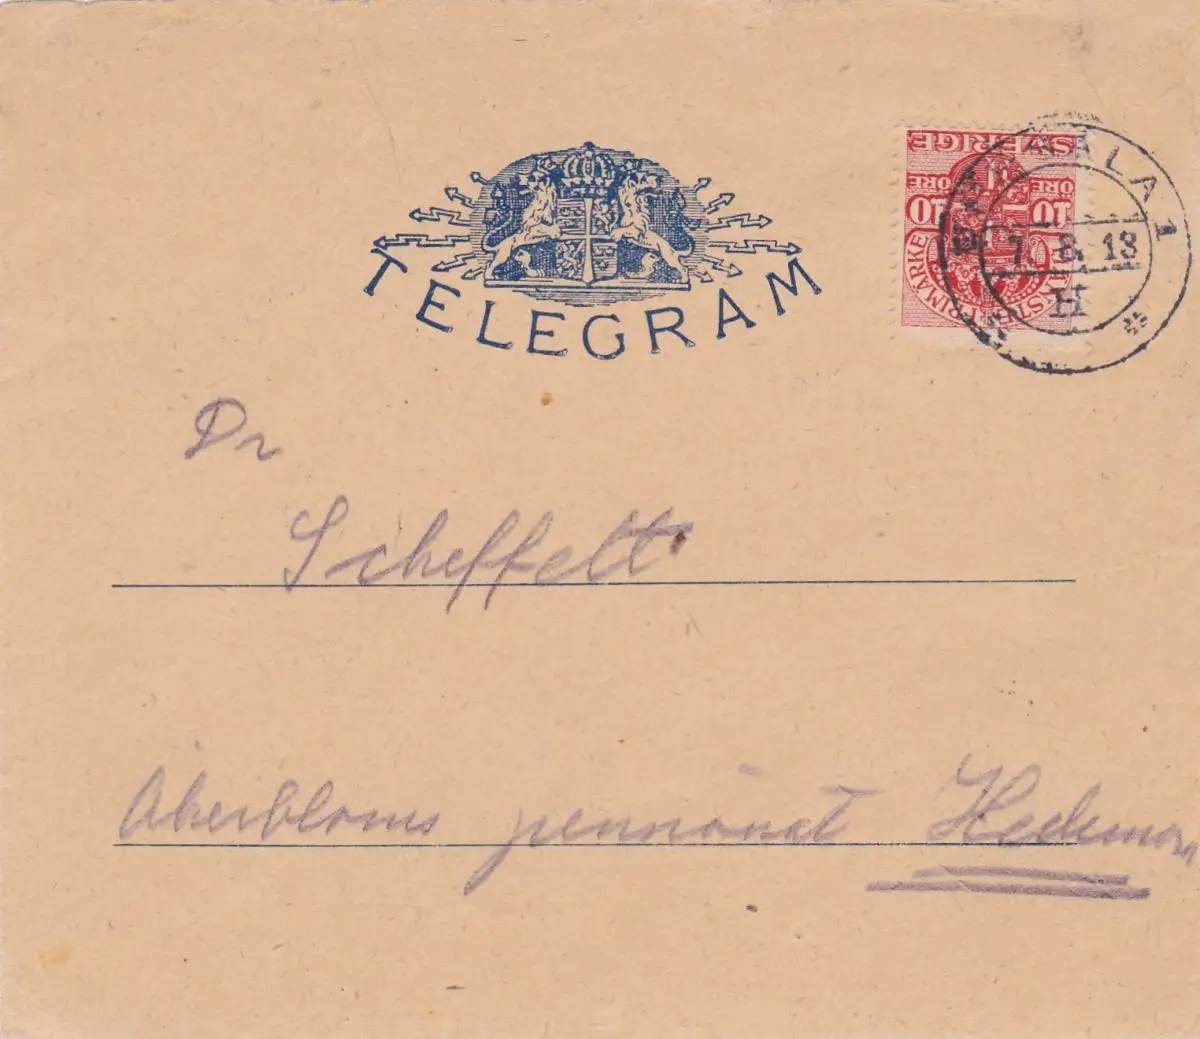 TELEGRAM
SVERIGE
ÖRE 10 ÖRE 10
FRIMÄRKE
1
7. 8. 13
H
Dr
Scheffelt
Åkerbloms pennsionat Hedemora